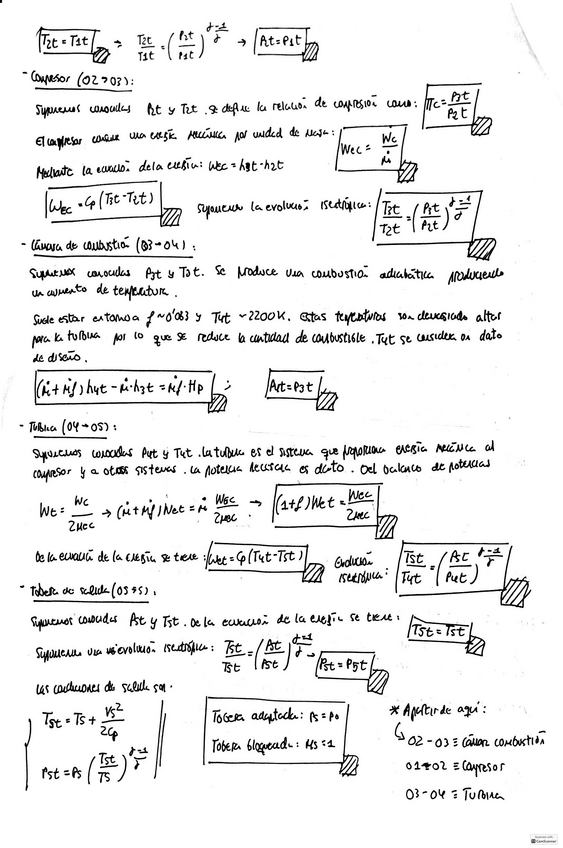 T2t = T1t ; T2t/T1t = (P2t/P1t)^((γ-1)/γ) → P2t = P1t
- Compresor (02→03):
Suponemos conocidas P2t y T2t. Se define la relación de compresión como: πc = P3t/P2t
El compresor consume una energía mecánica por unidad de masa: Wec = Ẇc/ṁ
Mediante la ecuación de la energía: Wec = h3t - h2t
Wec = Cp(T3t - T2t) suponiendo la evolución isentrópica: T3t/T2t = (P3t/P2t)^((γ-1)/γ)
- Cámara de combustión (03→04):
Suponemos conocidas P3t y T3t. Se produce una combustión adiabática produciendo
un aumento de temperatura.
Suele estar entorno a f ~ 0'063 y T4t ~ 2200K. Estas temperaturas son demasiado altas
para la turbina por lo que se reduce la cantidad de combustible. T4t se considera un dato
de diseño.
(ṁ + ṁf) h4t - ṁ·h3t = ṁf·Hp ; P4t = P3t
- Turbina (04→05):
Suponemos conocidas P4t y T4t. La turbina es el sistema que proporciona energía mecánica al
compresor y a otros sistemas. La potencia necesaria es dato. Del balance de potencias
Wt = Wc/ηmec → (ṁ + ṁf) Wet = ṁ Wec/ηmec → (1+f) Wet = Wec/ηmec
De la ecuación de la energía se tiene: Wet = Cp(T4t - T5t) Evolución
isentrópica: T5t/T4t = (P5t/P4t)^((γ-1)/γ)
- Tobera de salida (05→s):
Suponemos conocidas P5t y T5t. De la ecuación de la energía se tiene: T5t = Tst
Suponemos una evolución isentrópica: Tst/T5t = (Pst/P5t)^((γ-1)/γ) → Pst = P5t
Las condiciones de salida son.
Tst = Ts + Vs²/2Cp
Pst = Ps (Tst/Ts)^((γ-1)/γ)
Tobera adaptada: Ps = P0
Tobera bloqueada: Ms = 1
* A partir de aquí:
↳ 02 - 03 ≡ Cámara combustión
01 → 02 ≡ Compresor
03 - 04 ≡ Turbina
CamScanner